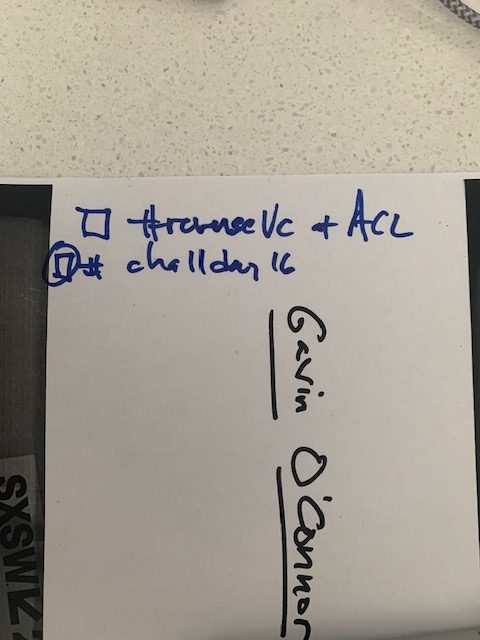 ☐ #reverseVc + ACL
☐ # challday 16
Gavin O'Connor
SXSW